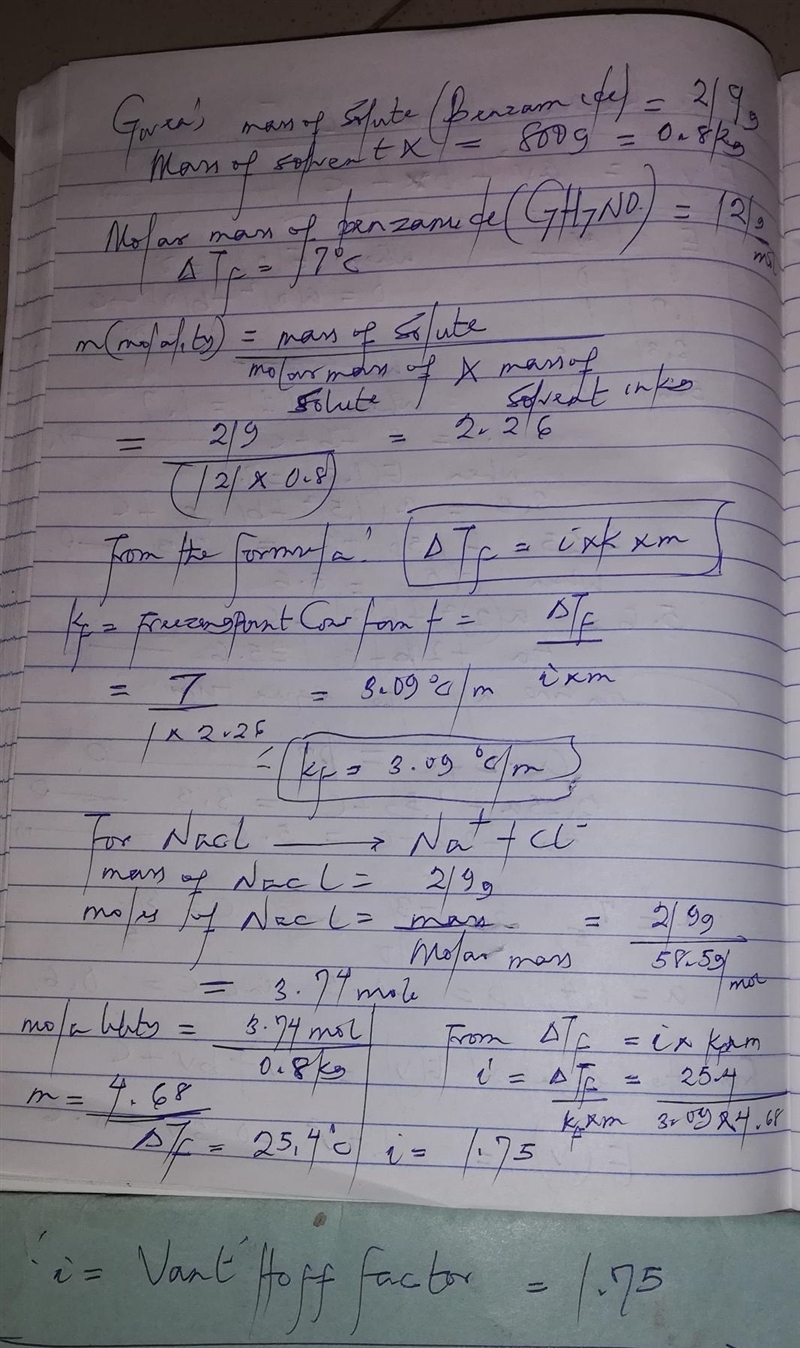 Given: mass of solute (Benzamide) = 219g
Mass of solvent X = 800g = 0.8kg
Molar mass of benzamide (C7H7NO) = 121g/mol
ΔTf = 7°C
m(molality) = mass of solute
molar mass of solute × mass of solvent in kg
= 219 / (121 × 0.8) = 2.26
From the formula: ΔTf = i×k×m
Kf = Freezing Point Constant = ΔTf / i×m
= 7 / 1×2.26 = 3.09°C/m
= kf = 3.09 °C/m
For NaCl → Na+ + Cl-
mass of NaCl = 219g
moles of NaCl = mass / Molar mass = 219g / 58.5g/mol
= 3.74 mole
molality = 3.74 mol / 0.8kg
m = 4.68
ΔTf = 25.4°C
From ΔTf = i× kf×m
i = ΔTf / kf×m = 25.4 / 3.09×4.68
i = 1.75
i = Vant' Hoff factor = 1.75